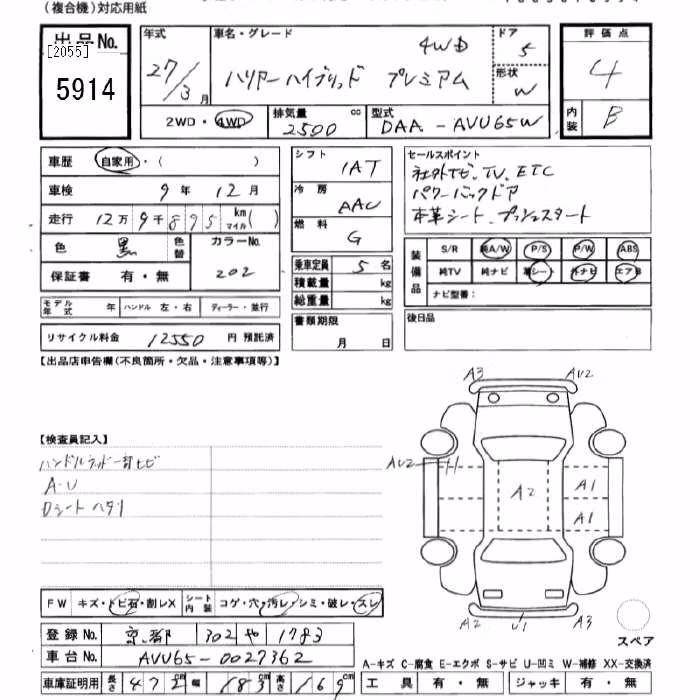 (複合機)対応用紙
出品No.
[2055]
5914
年式
27/3月
車名・グレード
4WD
ハリアーハイブリッド プレミアム
ドア
5
形状
W
評価点
4
内装
B
2WD・4WD
排気量
2500 cc
型式
DAA-AVU65W
車歴 自家用・( )
車検 9年 12月
走行 12万9千895 km マイル( )
色 黒 色替 カラーNo.
202
保証書 有・無
モデル年式 年 ハンドル 左・右 ディーラー・並行
リサイクル料金 12550 円 預託済
シフト
IAT
冷房
AAC
燃料
G
乗車定員 5名
積載量 kg
総重量 kg
書類期限
月 日
セールスポイント
社外ナビ、TV、ETC
パワーバックドア
本革シート、プッシュスタート
装備品
S/R 純A/W P/S P/W ABS
純TV 純ナビ 革シート 外ナビ エアB
ナビ型番:
後日品
【出品店申告欄(不良箇所・欠品・注意事項等)】
【検査員記入】
A-U
Dシート ハタリ
A3 AU2
AU2
A2
A1
A1
A2 U1 A3
スペア
FW キズ・トビ石・割レX シート内装 コゲ・穴・汚レ・シミ・破レ・スレ
登録No. 京都 302 や 1783
車台No. AVU65-0027362
車庫証明用 長さ 472cm 幅 183cm 高さ 169cm
A-キズ C-腐食 E-エクボ S-サビ U-凹ミ W-補修 XX-交換済
工具 有・無 ジャッキ 有・無